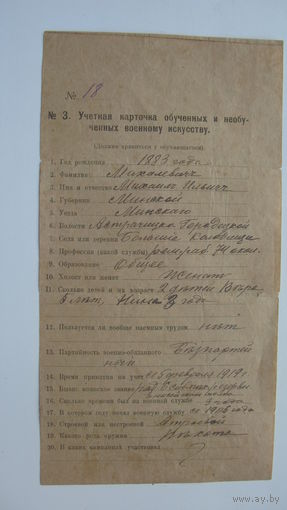 № 18
№ 3. Учетная карточка обученных и необу-
ченных военному искусству.
(Должна храниться у обучающегося).
1. Год рождения 1883 года
2. Фамилия Михалевич
3. Имя и отчество Михаил Ильич
4. Губернии Минской
5. Уезда Минскаго
6. Волости Городецкой
7. Села или деревни
8. Профессия (какой службы)
9. Образование Общее
10. Холост или женат Женат
11. Сколько детей и их возраст 2 детей Вера
5 лет, Нина 2 год
12. Пользуется ли вообще наемным трудом нет
13. Партийность военно-обязанного Безпартей
ный
14. Время принятия на учет с 5 февраля 1919 г.
15. Бывш. воинское звание
16. Сколько времени был на военной службе 3 года
17. В котором году начал военную службу с 1905 года
18. Строевой или нестроевой Строевой
19. Какого рода оружия Пехота
20. В каких кампаниях участвовал
ay.by